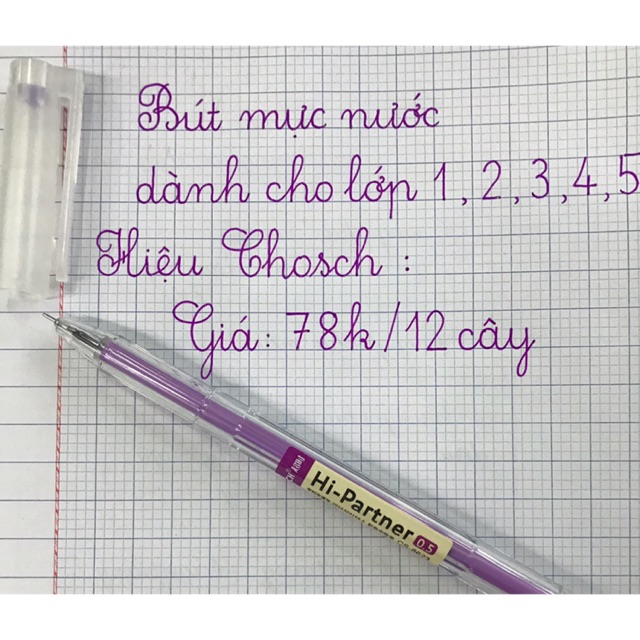 Bút mực nước
dành cho lớp 1, 2, 3, 4, 5
Hiệu Chosch :
Giá: 78k/12 cây
Hi-Partner 0.5